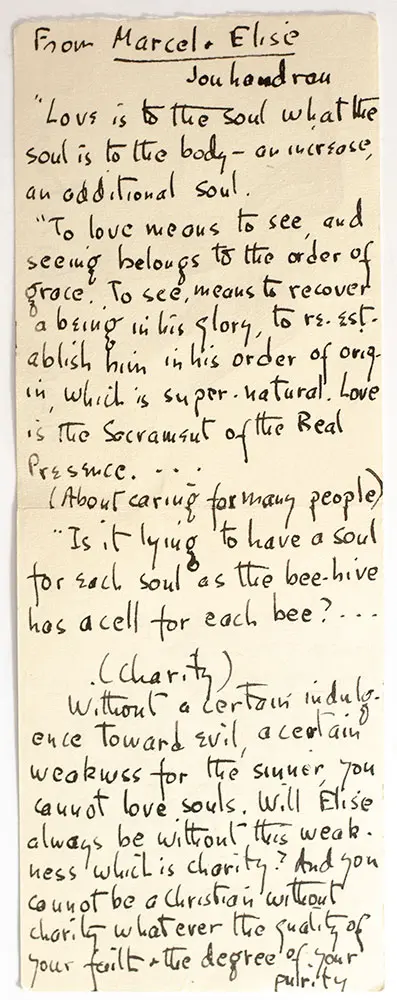 From Marcel + Elise
Jouhandeau
"Love is to the soul what the
soul is to the body – an increase,
an additional soul.
"To love means to see, and
seeing belongs to the order of
grace. To see, means to recover
a being in his glory, to re-est-
ablish him in his order of orig-
in, which is super-natural. Love
is the Sacrament of the Real
Presence. . . .
(About caring for many people)
"Is it lying to have a soul
for each soul as the bee-hive
has a cell for each bee? . . .
. (Charity)
Without a certain indulg-
ence toward evil, a certain
weakness for the sinner, you
cannot love souls. Will Elise
always be without this weak-
ness which is charity? And you
cannot be a Christian without
charity whatever the quality of
your faith + the degree of your
purity